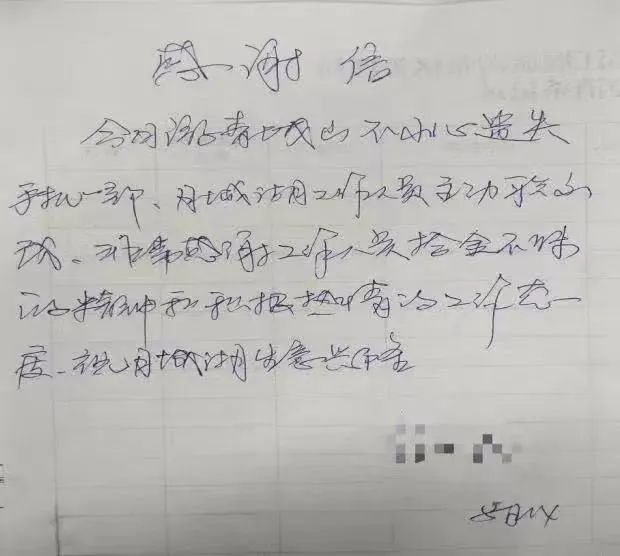 感谢信
今日游青城山不小心遗失
手机一部、月城湖工作人员主动联系
我、非常感谢工作人员拾金不昧
的精神和积极热情的工作态
度、祝月城湖生意兴隆